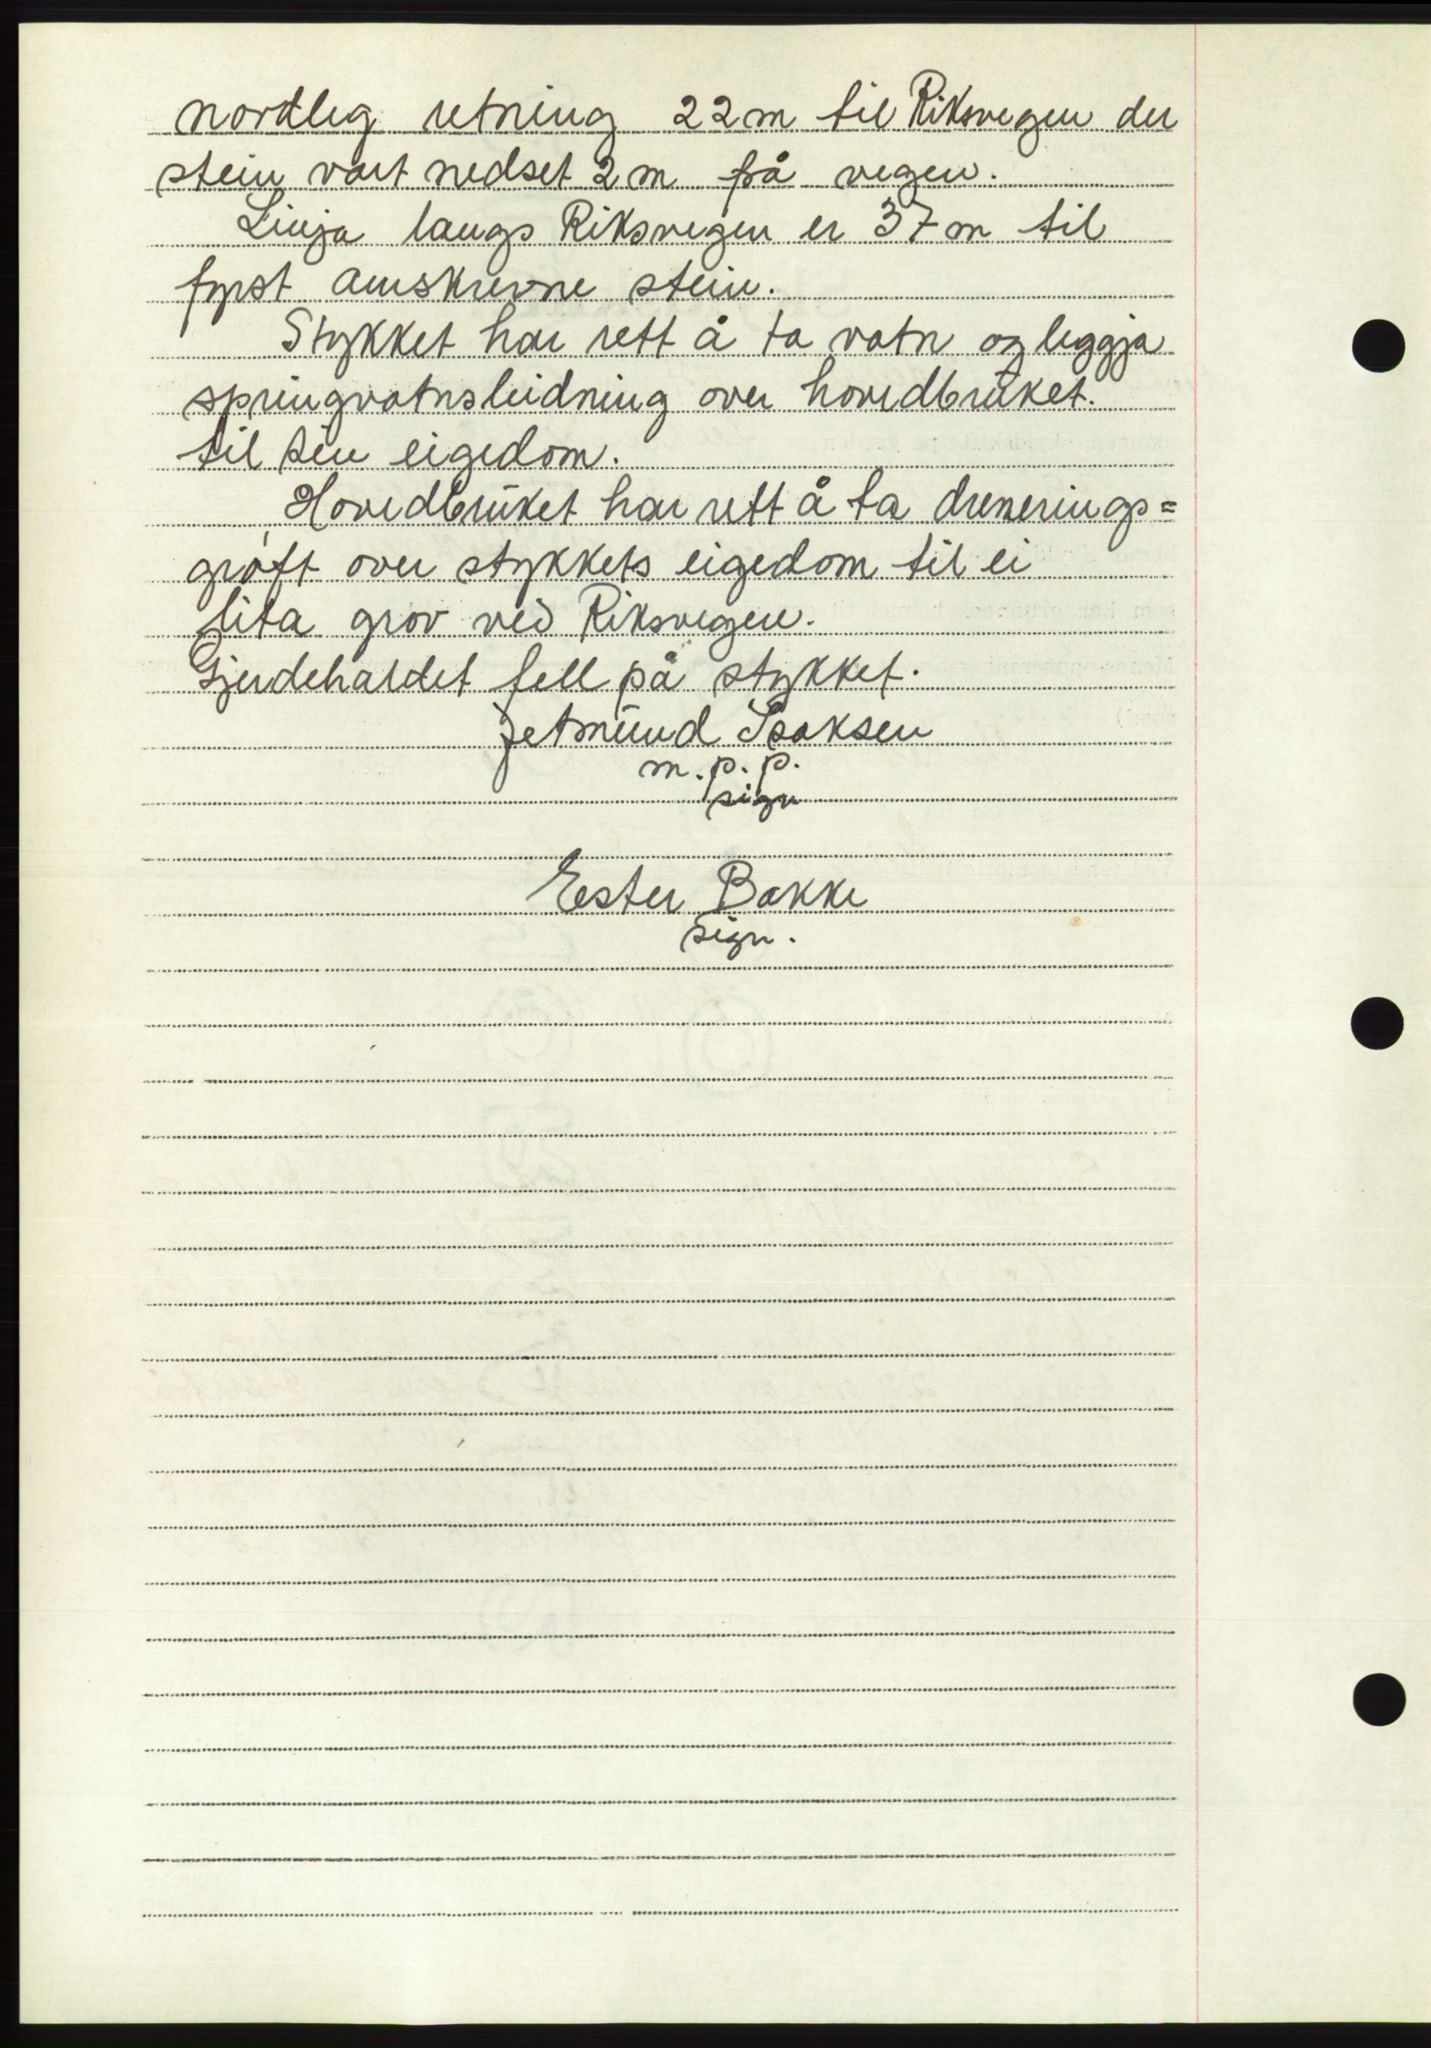 nordleg retning 22 m til Riksvegen der
stein vart nedset 2 m frå vegen.
Linja langs Riksvegen er 37 m til
fyrst omskrevne stein.
Stykket har rett å ta vatn og leggja
springvatnsleidning over hovedbruket.
til sin eigedom.
Hovedbruket har rett å ta drenerings=
grøft over stykkets eigedom til ei
lita grov ved Riksvegen.
Gjerdehaldet fell på stykket.
Jetmund Isaksen
m.p.p.
sign
Ester Bakke
sign.